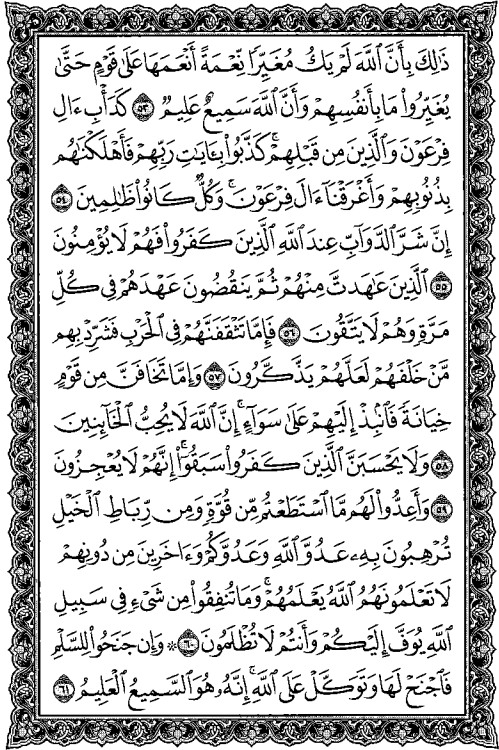 ذَٰلِكَ بِأَنَّ ٱللَّهَ لَمْ يَكُ مُغَيِّرًا نِّعْمَةً أَنْعَمَهَا عَلَىٰ قَوْمٍ حَتَّىٰ
يُغَيِّرُوا۟ مَا بِأَنفُسِهِمْ وَأَنَّ ٱللَّهَ سَمِيعٌ عَلِيمٌ ٥٣ كَدَأْبِ ءَالِ
فِرْعَوْنَ وَٱلَّذِينَ مِن قَبْلِهِمْ ۚ كَذَّبُوا۟ بِـَٔايَـٰتِ رَبِّهِمْ فَأَهْلَكْنَـٰهُم
بِذُنُوبِهِمْ وَأَغْرَقْنَآ ءَالَ فِرْعَوْنَ ۚ وَكُلٌّ كَانُوا۟ ظَـٰلِمِينَ ٥٤
إِنَّ شَرَّ ٱلدَّوَآبِّ عِندَ ٱللَّهِ ٱلَّذِينَ كَفَرُوا۟ فَهُمْ لَا يُؤْمِنُونَ
٥٥ ٱلَّذِينَ عَـٰهَدتَّ مِنْهُمْ ثُمَّ يَنقُضُونَ عَهْدَهُمْ فِى كُلِّ
مَرَّةٍ وَهُمْ لَا يَتَّقُونَ ٥٦ فَإِمَّا تَثْقَفَنَّهُمْ فِى ٱلْحَرْبِ فَشَرِّدْ بِهِم
مَّنْ خَلْفَهُمْ لَعَلَّهُمْ يَذَّكَّرُونَ ٥٧ وَإِمَّا تَخَافَنَّ مِن قَوْمٍ
خِيَانَةً فَٱنۢبِذْ إِلَيْهِمْ عَلَىٰ سَوَآءٍ ۚ إِنَّ ٱللَّهَ لَا يُحِبُّ ٱلْخَآئِنِينَ
٥٨ وَلَا يَحْسَبَنَّ ٱلَّذِينَ كَفَرُوا۟ سَبَقُوٓا۟ ۚ إِنَّهُمْ لَا يُعْجِزُونَ
٥٩ وَأَعِدُّوا۟ لَهُم مَّا ٱسْتَطَعْتُم مِّن قُوَّةٍ وَمِن رِّبَاطِ ٱلْخَيْلِ
تُرْهِبُونَ بِهِۦ عَدُوَّ ٱللَّهِ وَعَدُوَّكُمْ وَءَاخَرِينَ مِن دُونِهِمْ
لَا تَعْلَمُونَهُمُ ٱللَّهُ يَعْلَمُهُمْ ۚ وَمَا تُنفِقُوا۟ مِن شَىْءٍ فِى سَبِيلِ
ٱللَّهِ يُوَفَّ إِلَيْكُمْ وَأَنتُمْ لَا تُظْلَمُونَ ٦٠ * وَإِن جَنَحُوا۟ لِلسَّلْمِ
فَٱجْنَحْ لَهَا وَتَوَكَّلْ عَلَى ٱللَّهِ ۚ إِنَّهُۥ هُوَ ٱلسَّمِيعُ ٱلْعَلِيمُ ٦١